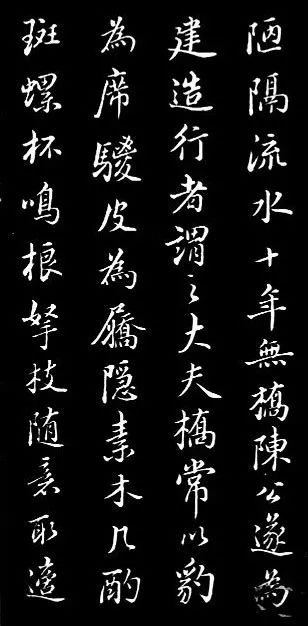 陋隔流水十年無橋陳公遂為
建造行者謂之大夫橋常以豹
為席驄皮為屩隱素木几酌
斑螺杯鳴榔拏枝随意取適